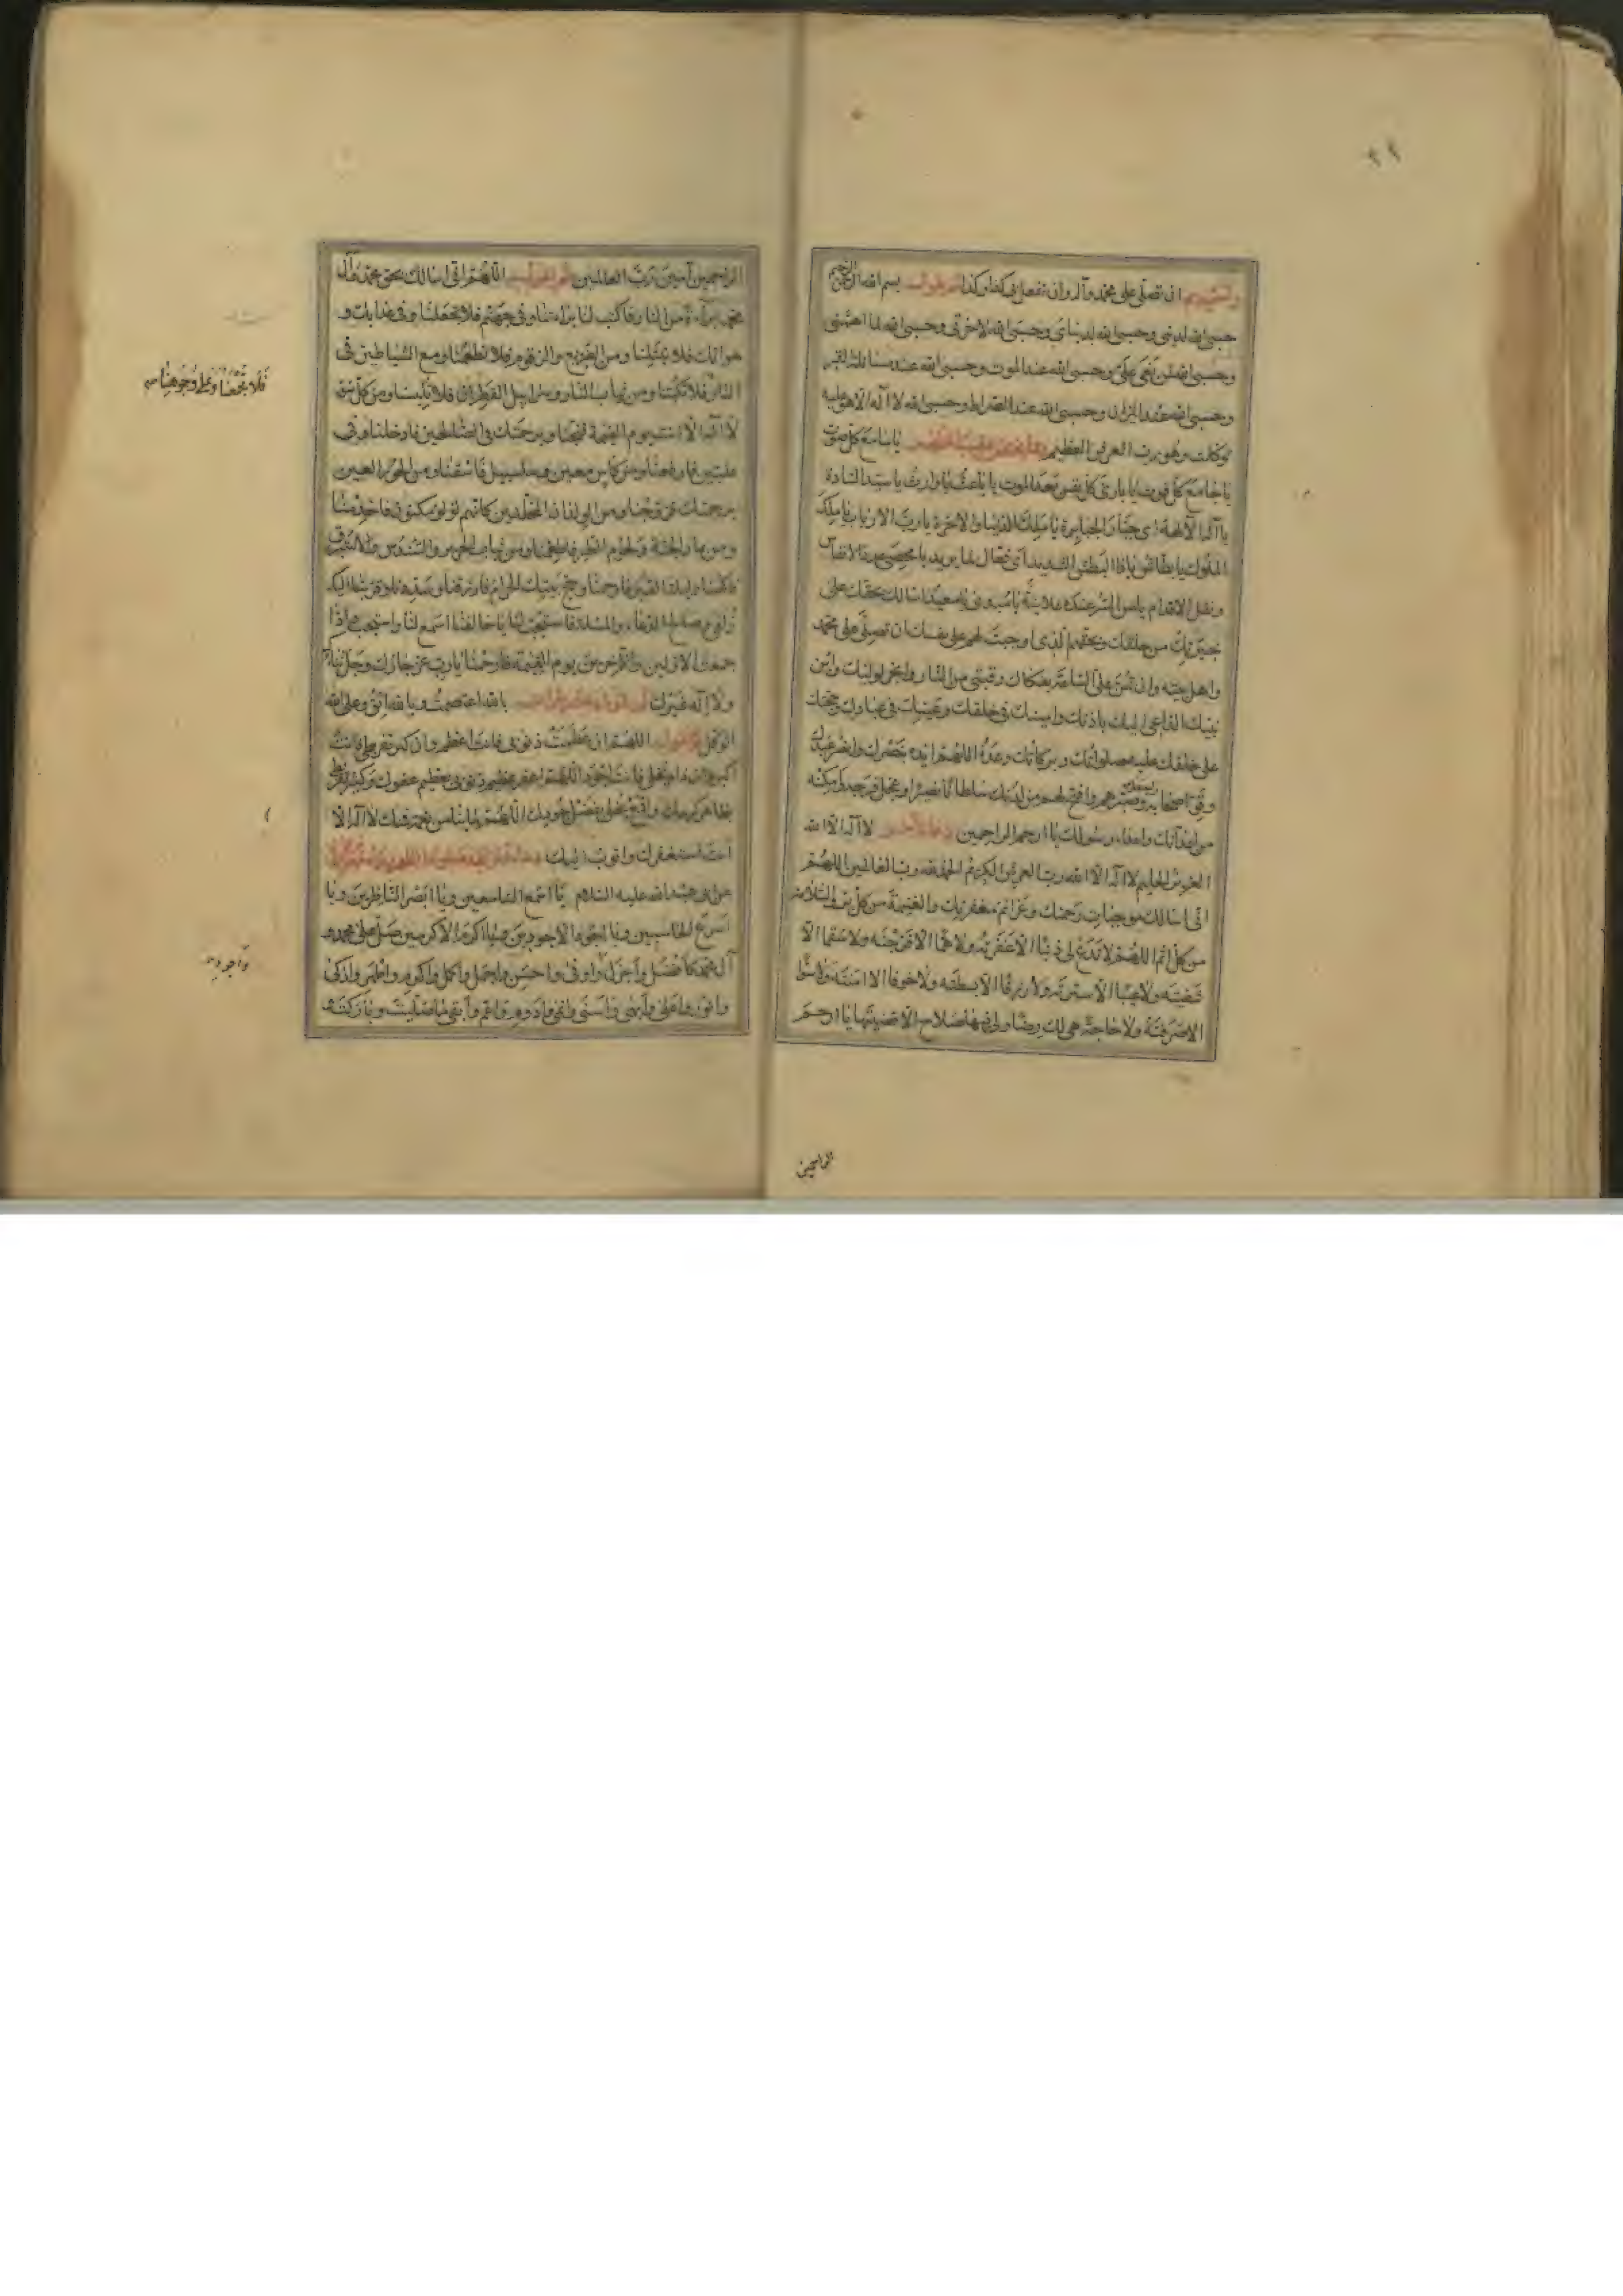 ٢٩
ان تصلى على محمد وآله وان تفعل بى كذا وكذا بسم الله الرحمن الرحيم
حسبى الله لدينى وحسبى الله لدنياى وحسبى الله لآخرتى وحسبى الله لما اهمنى
وحسبى الله لمن بغى علىّ وحسبى الله عند الموت وحسبى الله عند مسائلة القبر
وحسبى الله عند الميزان وحسبى الله عند الصراط وحسبى الله لا اله الا هو عليه
توكلت وهو رب العرش العظيم يا سامع كل صوت
يا جامع كل فوت يا بارئ كل نفس بعد الموت يا باعث يا وارث يا سيد السادة
يا اله الآلهة يا جبار الجبابرة يا ملك الدنيا والآخرة يا رب الارباب يا ملك
الملوك يا بطاش يا ذا البطش الشديد يا فعال لما يريد يا محصى عدد الانفاس
ونقل الاقدام يا من السر عنده علانية يا مبدئ يا معيد اسالك بحقك على
خيرتك من خلقك وبحقهم الذى اوجبت لهم على نفسك ان تصلى على محمد
واهل بيته وان تمن علىّ الساعة بفكاك رقبتى من النار وانجز لوليك وابن
نبيك الداعى اليك باذنك وامينك فى خلقك وعينك فى عبادك وحجتك
على خلقك عليه صلواتك وبركاتك وعده اللهم ايده بنصرك وانصر عبدك
وقوّ اصحابه وصبّرهم وافتح لهم من لدنك سلطانا نصيرا وعجل فرجه وامكنه
من اعدائك واعداء رسولك يا ارحم الراحمين دعاء آخر لا اله الا الله
العظيم الحليم لا اله الا الله رب العرش الكريم الحمد لله رب العالمين اللهم
انى اسالك موجبات رحمتك وعزائم مغفرتك والغنيمة من كل بر والسلامة
من كل اثم اللهم لا تدع لى ذنبا الا غفرته ولا هما الا فرجته ولا سقما الا
شفيته ولا عيبا الا سترته ولا رزقا الا بسطته ولا خوفا الا امنته ولا سوءا
الا صرفته ولا حاجة هى لك رضا ولى فيها صلاح الا قضيتها يا ارحم
الراحمين
الراحمين آمين رب العالمين اللهم انى اسالك بحق محمد وآل
محمد براءة من النار فاكتب لنا براءتنا وفى جهنم فلا تجعلنا وفى عذابك و
هوانك فلا تبتلنا ومن الضريع والزقوم فلا تطعمنا ومع الشياطين فى
النار فلا تكبنا ومن ثياب النار وسرابيل القطران فلا تلبسنا ومن كل سوء
لا اله الا انت يوم القيمة فنجنا وبرحمتك فى الصالحين فادخلنا وفى
عليين فارفعنا ومن كاس معين وسلسبيل فاسقنا ومن الحور العين
برحمتك فزوجنا ومن الولدان المخلدين كانهم لؤلؤ مكنون فاخدمنا
ومن ثمار الجنة ولحوم الطير فاطعمنا ومن ثياب الحرير والسندس والاستبرق
فاكسنا وليلة القدر فارحمنا وحج بيتك الحرام فارزقنا وسددنا وقربنا اليك
زلفى وصالح الدعاء والمسئلة فاستجب لنا يا خالقنا اسمع لنا واستجب واذا
جمعت الاولين والآخرين يوم القيمة فارحمنا يا رب عز جارك وجل ثناؤك
ولا اله غيرك بالله اعتصمت وبالله اثق وعلى الله
اتوكل اللهم ان عظمت ذنوبى فانت اعظم وان كبر تفريطى فانت
اكبر وان دام بخلى فانت اجود اللهم اغفر عظيم ذنوبى بعظيم عفوك وكثير تفريطى
بظاهر كرمك واقمع بخلى بفضل جودك اللهم ما بنا من نعمة فمنك لا اله الا
انت استغفرك واتوب اليك
عن ابى عبد الله عليه السلام يا اسمع السامعين ويا ابصر الناظرين ويا
اسرع الحاسبين ويا اجود الاجودين ويا اكرم الاكرمين صل على محمد و
آل محمد كافضل واجزل واوفى واحسن واجمل واكمل واكبر واطهر وازكى
وانور واعلى وابهى واسنى وانمى وادوم واعم وابقى ما صليت وباركت و
فلا تجمعنا وعلى وجوهنا
واجود